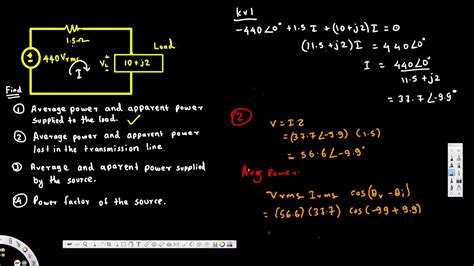 1.5Ω
Load
440Vrms
I
VL
10+j2
Find
① Average power and apparent power
supplied to the load. ✓
② Average power and apparent power
lost in the transmission line.
③ Average and aparent power supplied
by the source.
④ Power factor of the source.
KVL
-440∠0° + 1.5 I + (10+j2) I = 0
(11.5+j2) I = 440∠0°
I = 440∠0°
11.5+j2
= 37.7∠-9.9°
②
V = I Z
= (37.7∠-9.9) (1.5)
= 56.6∠-9.9°
Avg Power
Vrms Irms cos(θv - θi)
= (56.6)(37.7) cos(-9.9 + 9.9)